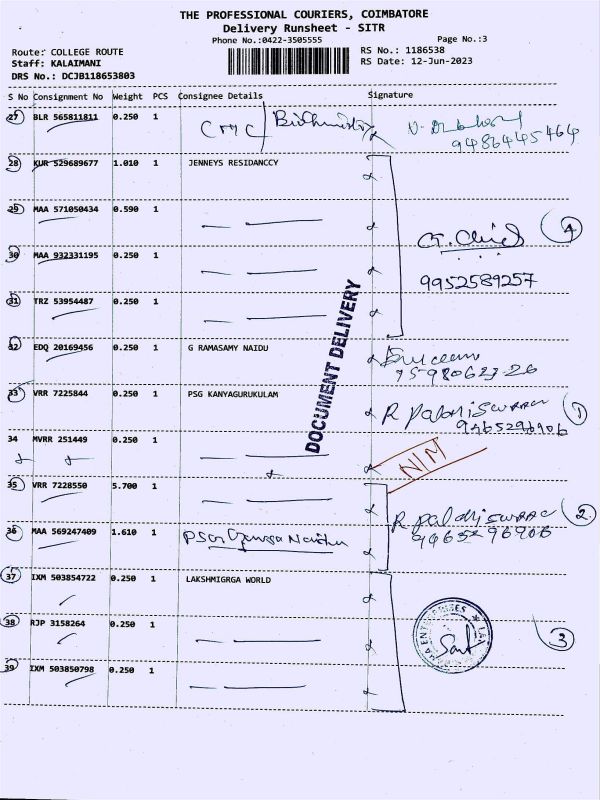 THE PROFESSIONAL COURIERS, COIMBATORE
Delivery Runsheet - SITR
Phone No.:0422-3505555 Page No.:3
Route: COLLEGE ROUTE RS No.: 1186538
Staff: KALAIMANI RS Date: 12-Jun-2023
DRS No.: DCJB118653803
S No Consignment No Weight PCS Consignee Details Signature
27 BLR 565811811 0.250 1
9486445464
28 KUR 529689677 1.010 1 JENNEYS RESIDANCCY
29 MAA 571050434 0.590 1
4
30 MAA 932331195 0.250 1
9952589257
31 TRZ 53954487 0.250 1
DOCUMENT DELIVERY
32 EDQ 20169456 0.250 1 G RAMASAMY NAIDU
33 VRR 7225844 0.250 1 PSG KANYAGURUKULAM R 1
34 MVRR 251449 0.250 1
N/M
35 VRR 7228550 5.700 1
R 2
36 MAA 569247409 1.610 1
37 IXM 503854722 0.250 1 LAKSHMIGRGA WORLD
38 RJP 3158264 0.250 1 3
39 IXM 503850798 0.250 1